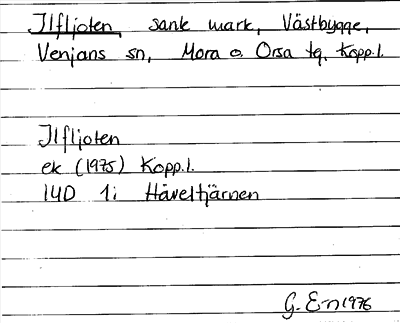 Ilfljoten, sank mark, Västbygge,
Venjans sn, Mora o. Orsa tg, Kopp.l.
Ilfljoten
ek (1975) Kopp.l.
14D 1i Håveltjärnen
G. E-n 1976